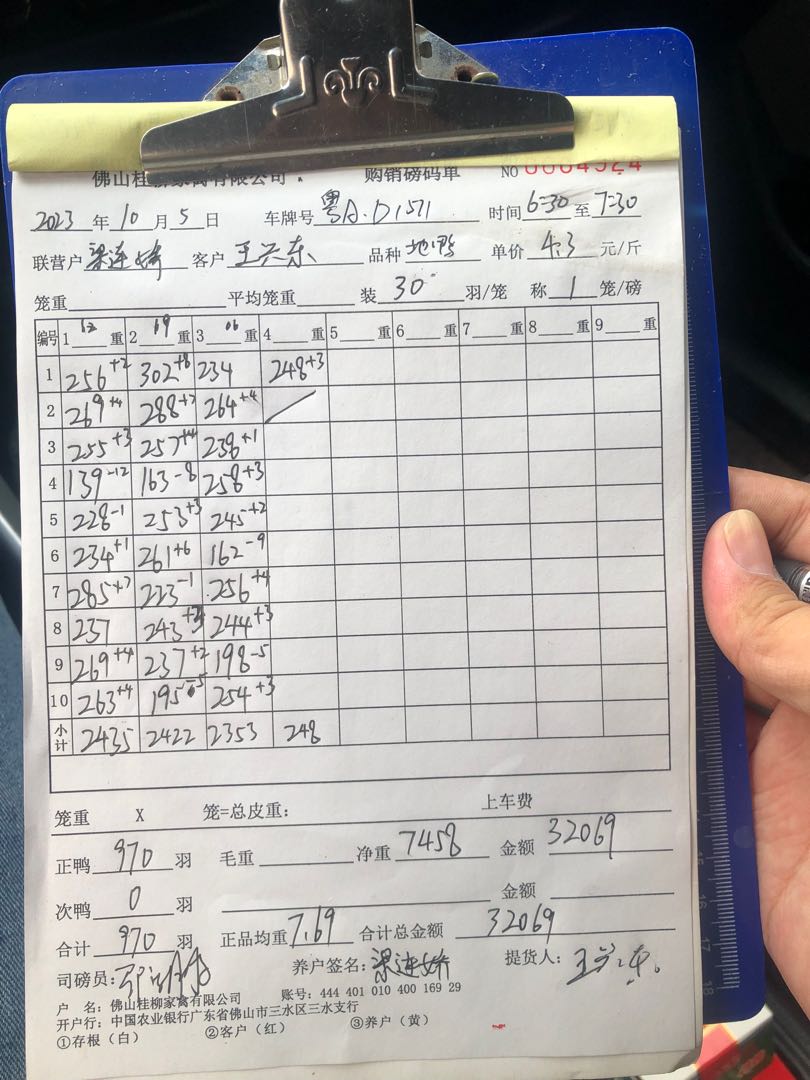 佛山桂柳家禽有限公司 购销磅码单 NO 0004924
2023 年 10 月 5 日 车牌号 粤A·D1571 时间 6:30 至 7:30
联营户 梁连娇 客户 王兴东 品种 地鸭 单价 4.3 元/斤
笼重 平均笼重 装 30 羽/笼 称 1 笼/磅
编号 1 12 重 2 19 重 3 16 重 4 重 5 重 6 重 7 重 8 重 9 重
1 256+2 302+8 234 248+3
2 269+4 288+7 264+4
3 255+3 257+4 238+1
4 139-12 163-8 258+3
5 228-1 253+3 245+2
6 234+1 261+6 162-9
7 285+7 223-1 256+4
8 237 243 244+3
9 269+4 237+2 198-5
10 263+4 195-5 254+3
小计 2435 2422 2353 248
笼重 X 笼=总皮重: 上车费
正鸭 970 羽 毛重 净重 7458 金额 32069
次鸭 0 羽 金额
合计 970 羽 正品均重 7.69 合计总金额 32069
司磅员: 养户签名: 梁连娇 提货人: 王兴东
户 名: 佛山桂柳家禽有限公司 账号: 444 401 010 400 169 29
开户行: 中国农业银行广东省佛山市三水区三水支行
①存根(白) ②客户(红) ③养户(黄)